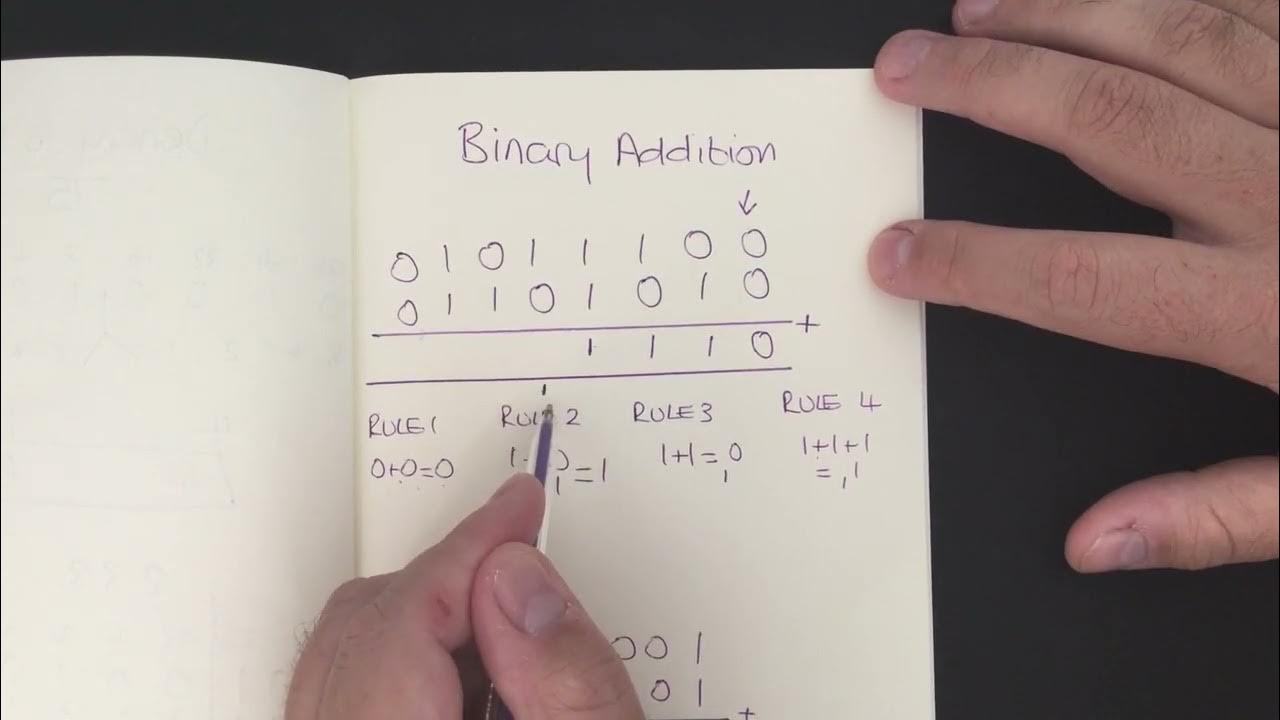 Binary Addition
↓
0 1 0 1 1 1 0 0
0 1 1 0 1 0 1 0
+
1 1 1 0
1
RULE 1 RULE 2 RULE 3 RULE 4
0+0=0 =1 1+1=0 1+1+1
1 1 =,1
0 0 1
0 1
+